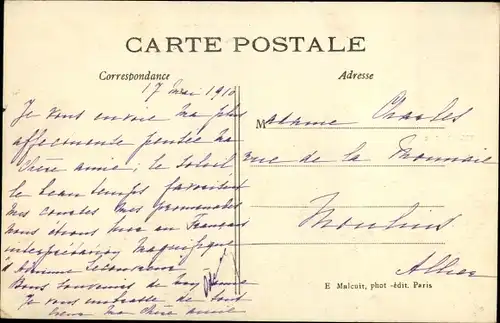 CARTE POSTALE
Correspondance
Adresse
17 mai 1910
Je vous envoie ma plus
affectionnée pensée ma
chère amie ; le soleil
le beau temps favorisent
mes courses mes promenades
nous avons vu au Français
interprétation magnifique
Bons souvenirs de
Je vous embrasse de tout
coeur ma chère amie
Madame Charles
rue de la Monnaie
Moulins
Allier
E Malcuit, phot -édit. Paris